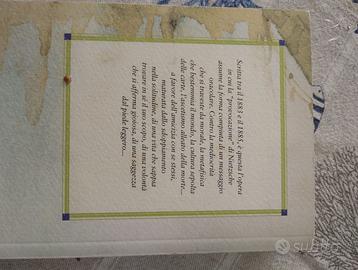 Scritta fra il 1883 e il 1885, è questa l'opera
in cui la "provocazione" di Nietzsche
assume la forma compiuta di un messaggio
oracolare. Contro la mediocrità
che si traveste da morale, la metafisica
che bestemmia il mondo, la cultura sepolta
dalle carte, l'ascetismo alleato della morte...
a favore dell'amicizia con se stessi,
maturata dallo sdoppiamento
nella solitudine, di una vita che sappia
trovare in sé il suo scopo, di una volontà
che si afferma gioiosa, di una saggezza
dal piede leggero...
subito